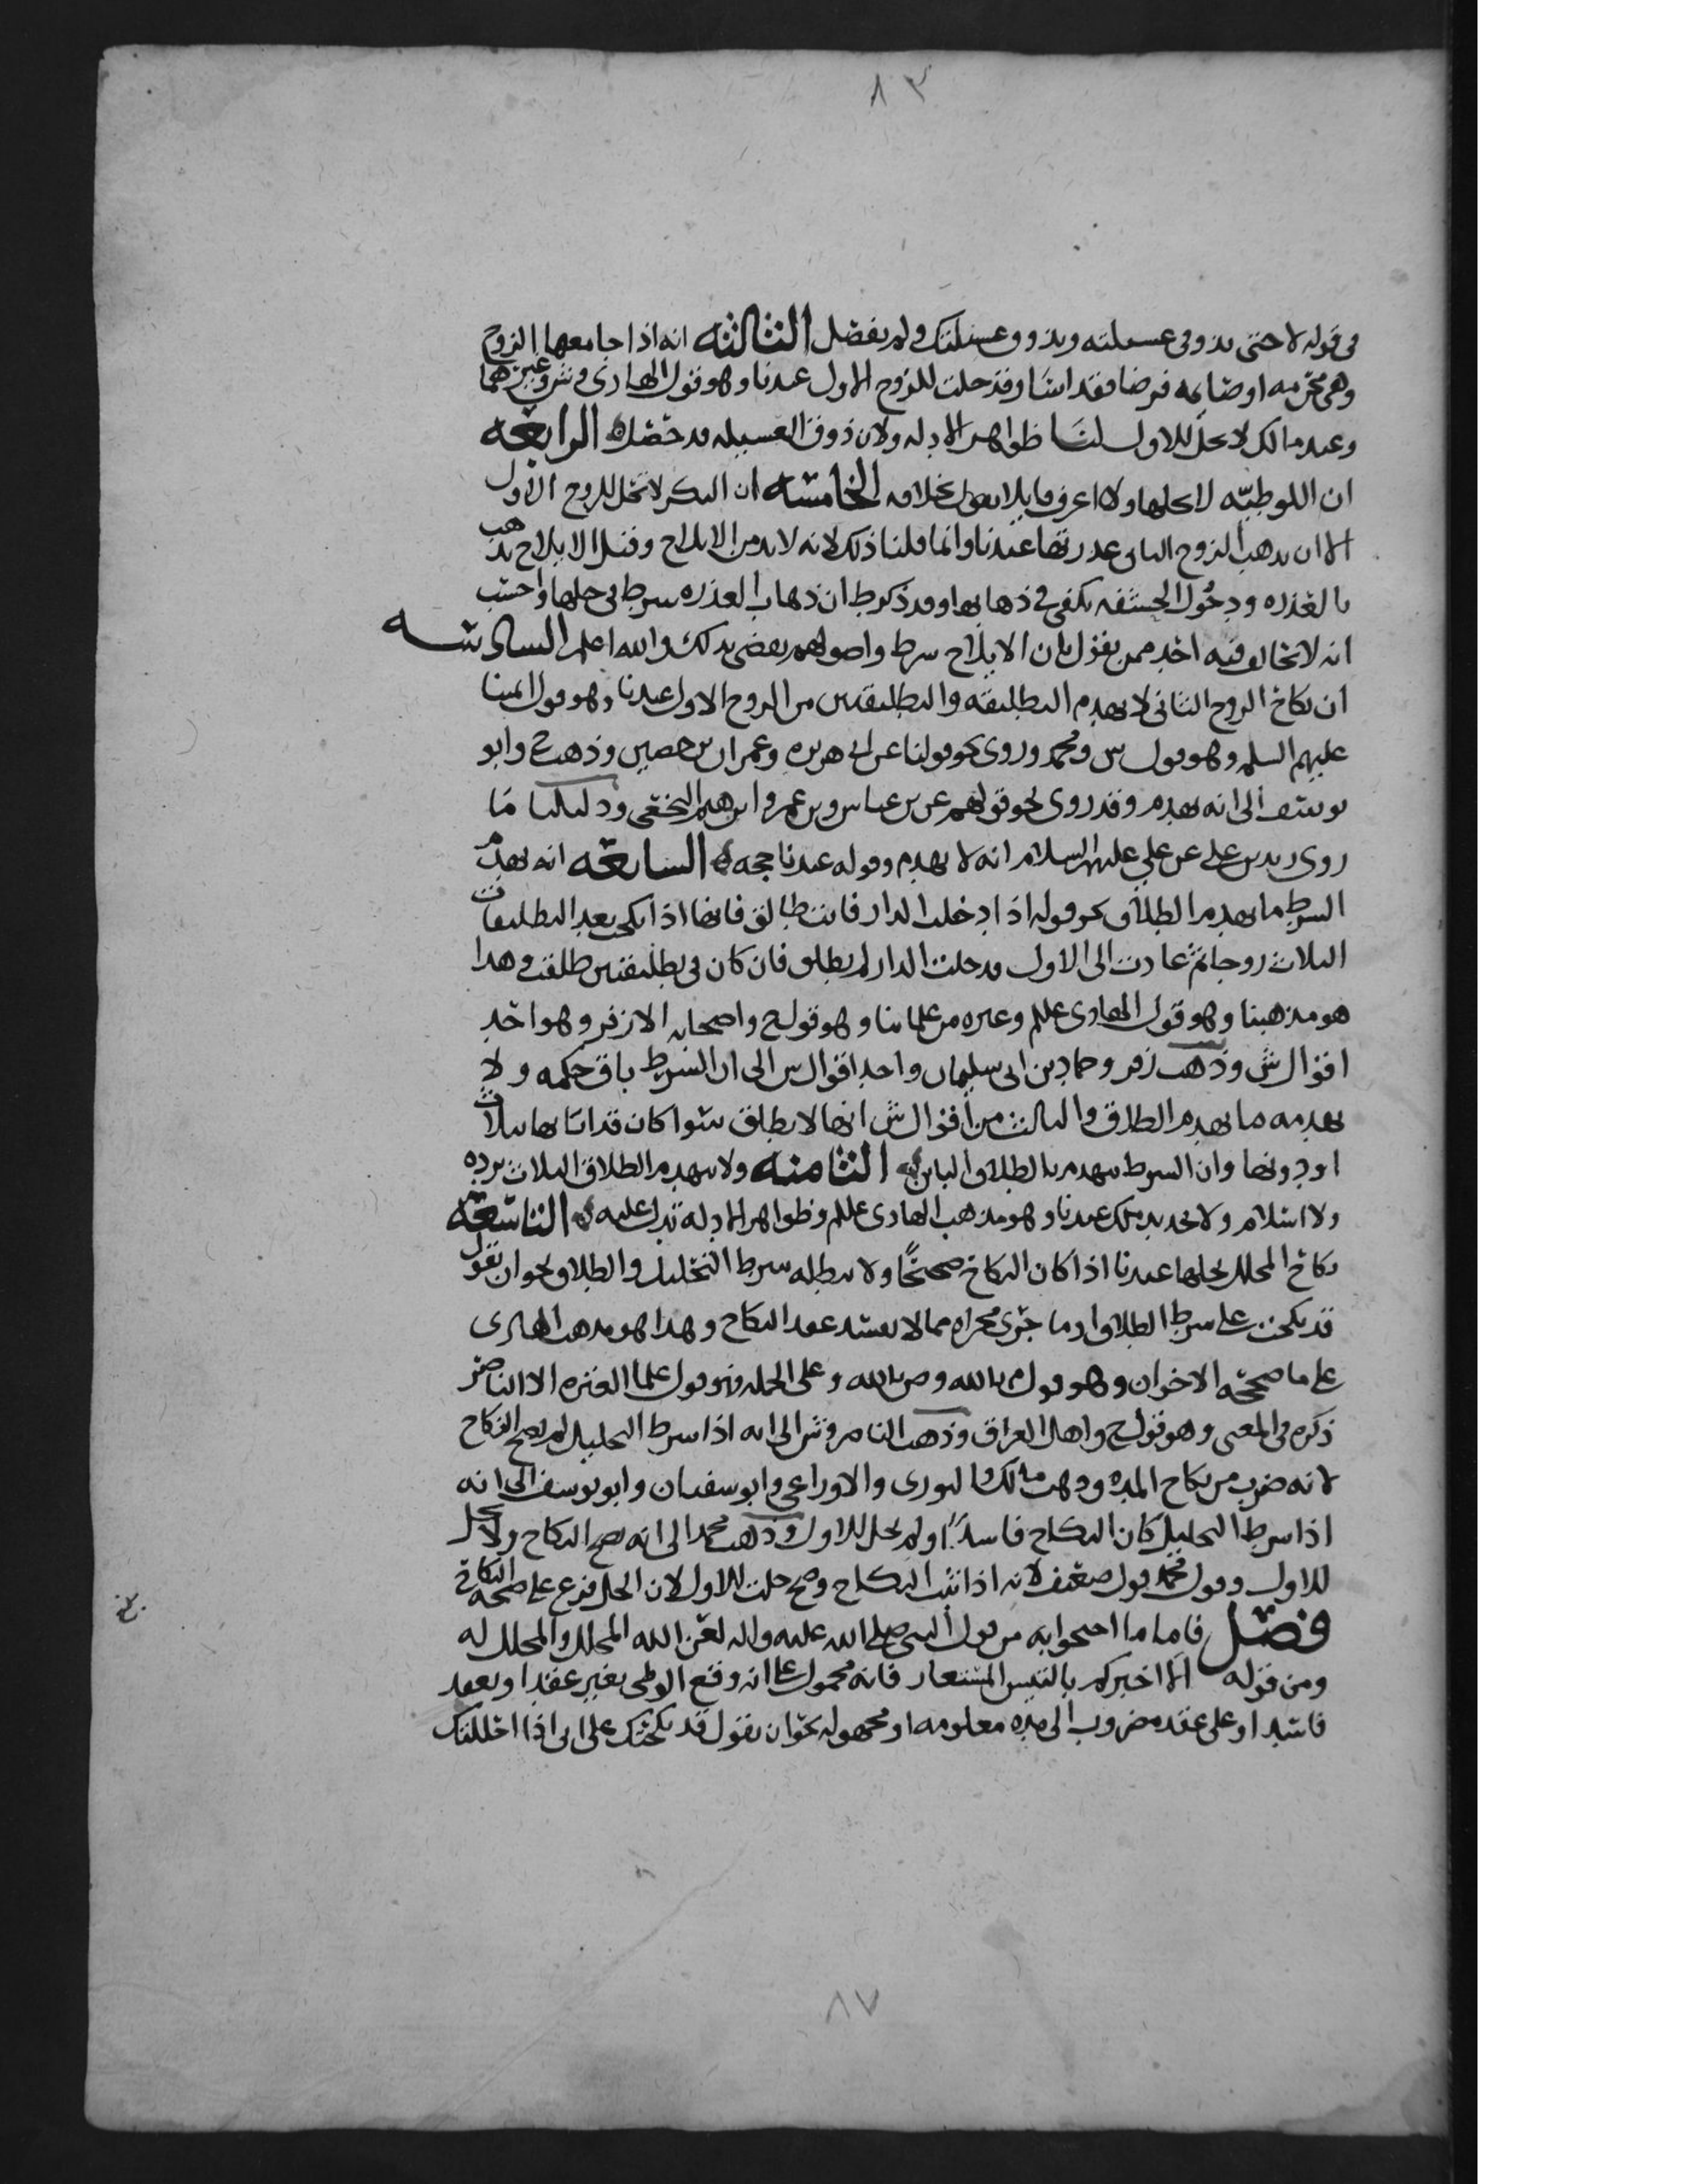 ٨٣
في قوله لا حتى يذوق عسيلته ويذوق عسيلتك ولم يفصل الثالثه انه اذا جامعها الزوج
وهي محرمه او صايمه فرضا فقد اسا وقد حلت للزوج الاول عندنا وهو قول الهادي و ش وغيرهما
وعند مالك لا تحل للاول لنا ظواهر الادله ولان ذوق العسيله قد حصل الرابعه
ان اللوطيه لا تحلها ولا اعرف قايلا يقول بخلافه الخامسه ان البكر لا تحل للزوج الاول
الا ان يذهب الزوج الثاني عذرتها عندنا وانما قلنا ذلك لانه لابد من الايلاج وقيل الايلاج يذهب
بالعذره ودخول الحشفه يكفي في ذهابها وقد ذكر ط ان ذهاب العذره شرط في حلها واحسب
انه لا يخالف فيه احد ممن يقول بان الايلاج شرط واصولهم يقضي بذلك والله اعلم السادسه
ان نكاح الزوج الثاني لا يهدم التطليقه والتطليقتين من الزوج الاول عندنا وهو قول ائمتنا
عليهم السلم وهو قول س ومحمد وروي نحو قولنا عن ابي هريره وعمران بن حصين وذهب ح وابو
يوسف الى انه يهدم وقد روي نحو قولهم عن بن عباس وبن عمر وابرهيم النخعي ودليلنا ما
روى زيد بن علي عن علي عليهم السلام انه لا يهدم وقوله عندنا حجه السابعه انه يهدم
الشرط ما يهدم الطلاق نحو قوله اذا دخلت الدار فانت طالق فانها اذا نكحت بعد التطليقات
الثلاث زوجا ثم عادت الى الاول فدخلت الدار لم يطلق فان كان في تطليقتين طلقت وهذا
هو مذهبنا وهو قول الهادي عللم وغيره من علمائنا وهو قول ح واصحابه الا زفر وهو احد
اقوال ش وذهب زفر وحماد بن ابي سليمان واحد اقوال س الى ان الشرط باق حكمه ولا
يهدمه ما يهدم الطلاق والثالث من اقوال ش انها لا يطلق سوا كان قد ابانها بثلاث
او دونها وان الشرط ينهدم بالطلاق الباين الثامنه ولا ينهدم الطلاق الثلاث برده
ولا اسلام ولا تجديد ملك عندنا وهو مذهب الهادي عللم وظواهر الادله تدل عليه التاسعه
نكاح المحلل يحلها عندنا اذا كان النكاح صحيحًا ولا يبطله شرط التحليل والطلاق نحو ان يقول
قد نكحت على شرط الطلاق او ما جرى مجراه مما لا يفسد عقد النكاح وهذا هو مذهب الهادي
على ما صححه الاخوان وهو قول م بالله وص بالله وعلى الجمله فهو قول علما العتره الا الناصر
ذكره في المغني وهو قول ح واهل العراق وذهب الناصر و ش الى انه اذا شرط التحليل لم يصح النكاح
لانه ضرب من نكاح المده وذهب مالك والثوري والاوزاعي وابو سفيان وابو يوسف الى انه
اذا شرط التحليل كان النكاح فاسدًا ولم يحل للاول وذهب محمد الى انه يصح النكاح ولا تحل
للاول وقول محمد قول ضعيف لانه اذا ثبت النكاح وصح حلت للاول لان الحل فرع على صحة النكاح
فصل فاما ما احتجوا به من قول النبي صلى الله عليه واله لعن الله المحلل والمحلل له
ومن قوله الا اخبركم بالتيس المستعار فانه محمول على انه وقع الوطي بغير عقد او بعقد
فاسد او على عقد مضروب الى مده معلومه او مجهوله نحو ان يقول قد نكحتك على اني اذا احللتك
٨٧